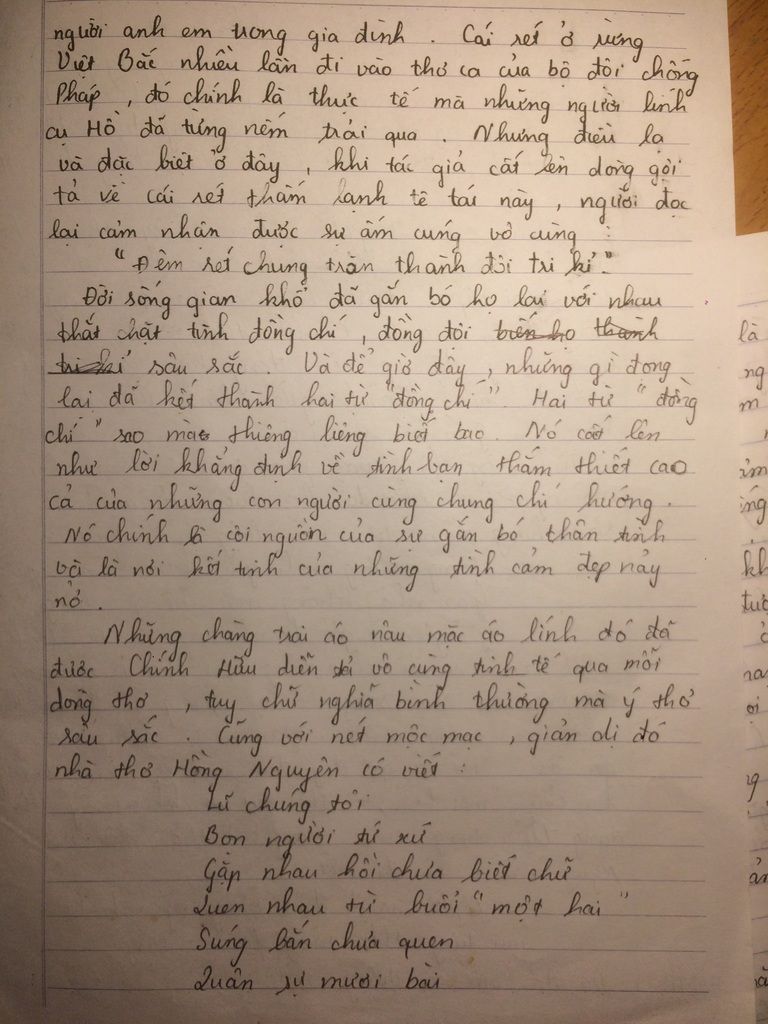 người anh em trong gia đình. Cái rét ở rừng
Việt Bắc nhiều lần đi vào thơ ca của bộ đội chống
Pháp, đó chính là thực tế mà những người lính
cụ Hồ đã từng nếm trải qua. Nhưng điều lạ
và đặc biệt ở đây, khi tác giả cất lên dòng gợi
tả về cái rét thấm lạnh tê tái này, người đọc
lại cảm nhận được sự ấm cúng vô cùng:
"Đêm rét chung trăn thành đôi tri kỉ."
Đời sống gian khổ đã gắn bó họ lại với nhau
thắt chặt tình đồng chí, đồng đội biến họ thành
tri kỉ sâu sắc. Và để giờ đây, những gì đọng
lại đã kết thành hai từ "đồng chí" Hai từ "đồng
chí" sao mà thiêng liêng biết bao. Nó cất lên
như lời khẳng định về tình bạn thắm thiết cao
cả của những con người cùng chung chí hướng.
Nó chính là cội nguồn của sự gắn bó thân tình
và là nơi kết tinh của những tình cảm đẹp nảy
nở.
Những chàng trai áo nâu mặc áo lính đó đã
được Chính Hữu diễn tả vô cùng tinh tế qua mỗi
dòng thơ, tuy chữ nghĩa bình thường mà ý thơ
sâu sắc. Cũng với nét mộc mạc, giản dị đó
nhà thơ Hồng Nguyên có viết:
Lũ chúng tôi
Bọn người tứ xứ
Gặp nhau hồi chưa biết chữ
Quen nhau từ buổi "một hai"
Súng bắn chưa quen
Quân sự mươi bài
là
ng
m